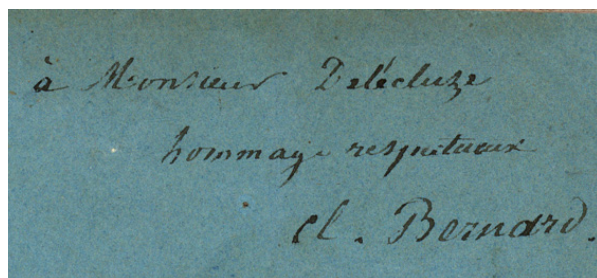 à Monsieur Delécluze
hommage respectueux
Cl. Bernard.